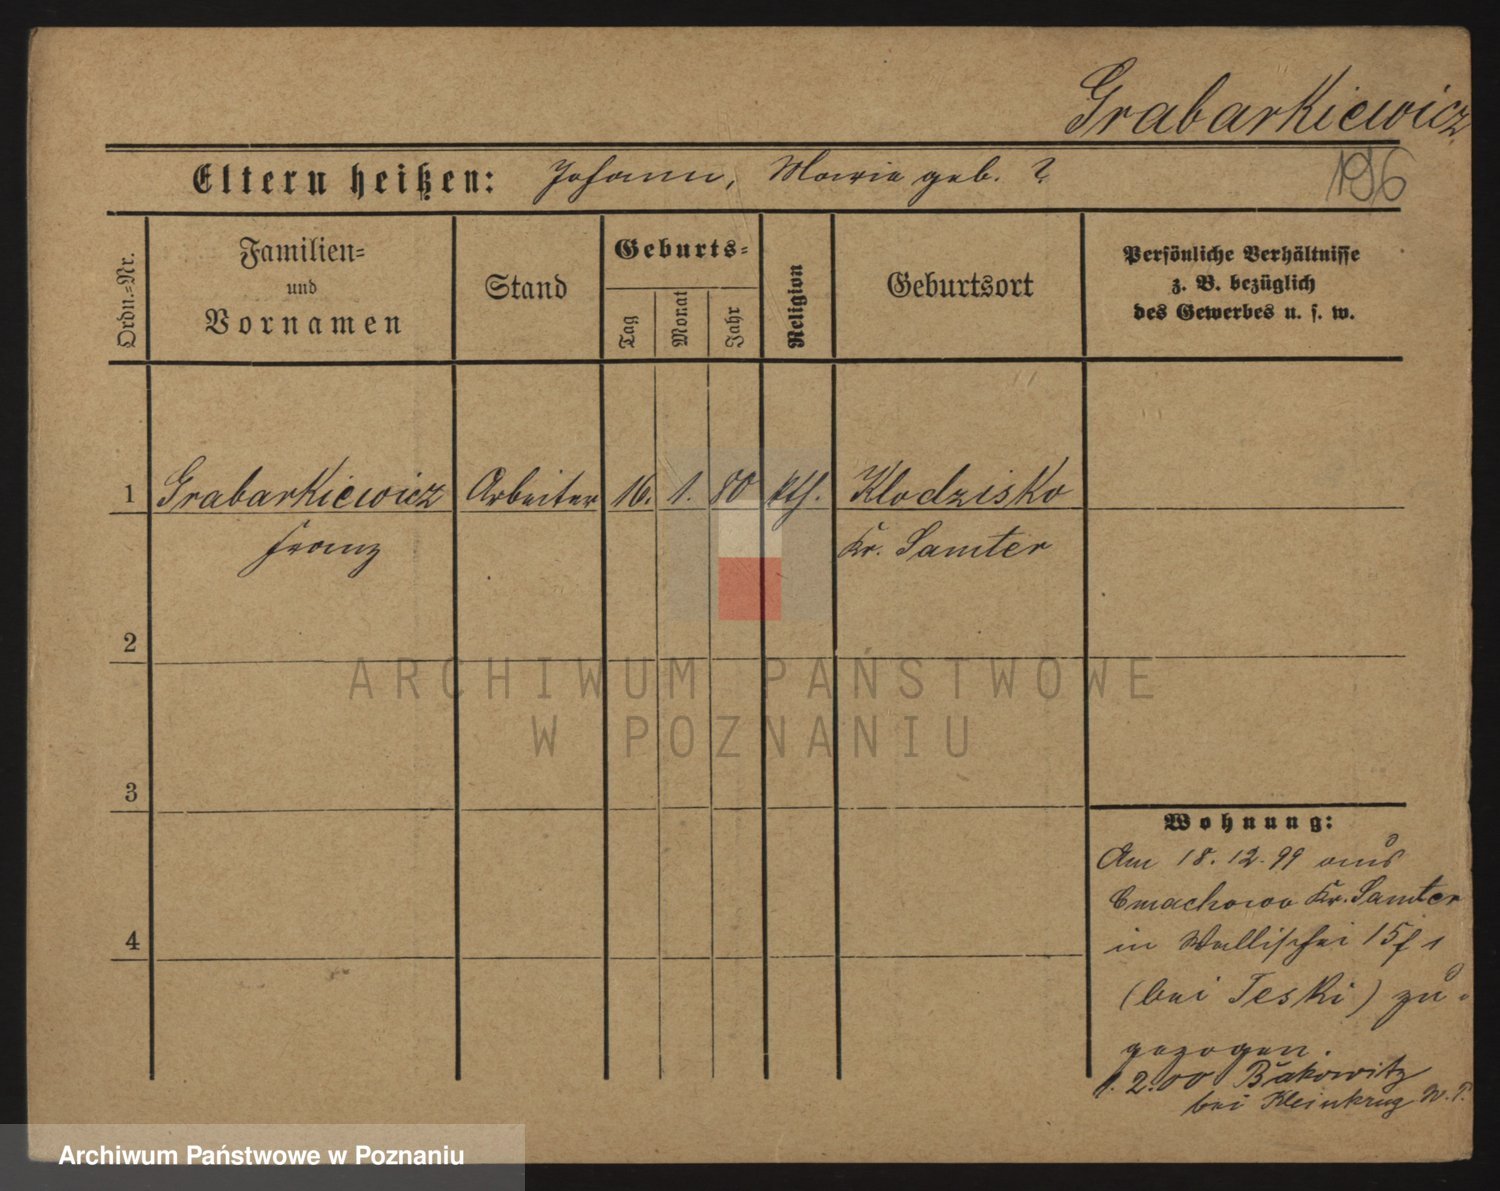 Grabarkiewicz
196
Eltern heißen: Johann, Marie geb. ?
Ordn.-Nr.
Familien-
und
Vornamen
Stand
Geburts-
Tag
Monat
Jahr
Religion
Geburtsort
Persönliche Verhältnisse
z. B. bezüglich
des Gewerbes u. s. w.
1 Grabarkiewicz Arbeiter 16. 1. 80 kth. Klodzisko
Franz Kr. Samter
2
3
4
ARCHIWUM PAŃSTWOWE
W POZNANIU
Wohnung:
Am 18.12.99 aus
Cmachowo Kr. Samter
in Wallischei 15f 1
(bei Teski) zu-
gezogen.
1.2.00 Bakowitz
bei Kleinkrug W. P.
Archiwum Państwowe w Poznaniu